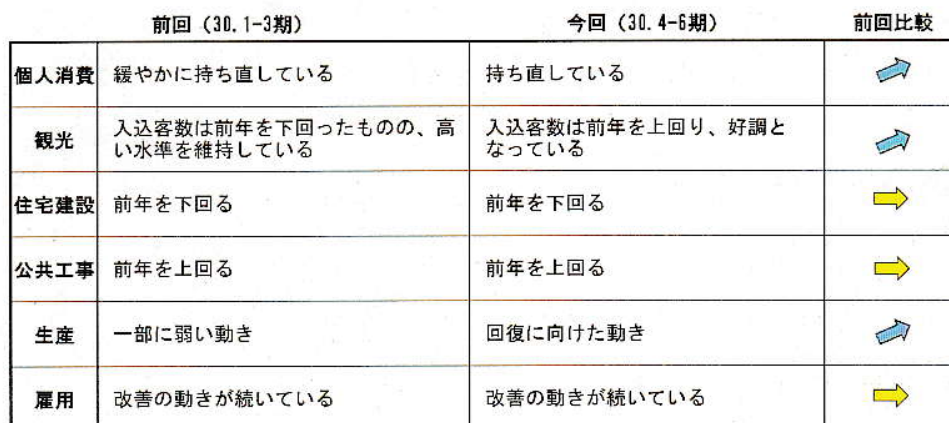 前回（30.1-3期） 今回（30.4-6期） 前回比較
個人消費 緩やかに持ち直している 持ち直している
観光 入込客数は前年を下回ったものの、高い水準を維持している 入込客数は前年を上回り、好調となっている
住宅建設 前年を下回る 前年を下回る
公共工事 前年を上回る 前年を上回る
生産 一部に弱い動き 回復に向けた動き
雇用 改善の動きが続いている 改善の動きが続いている